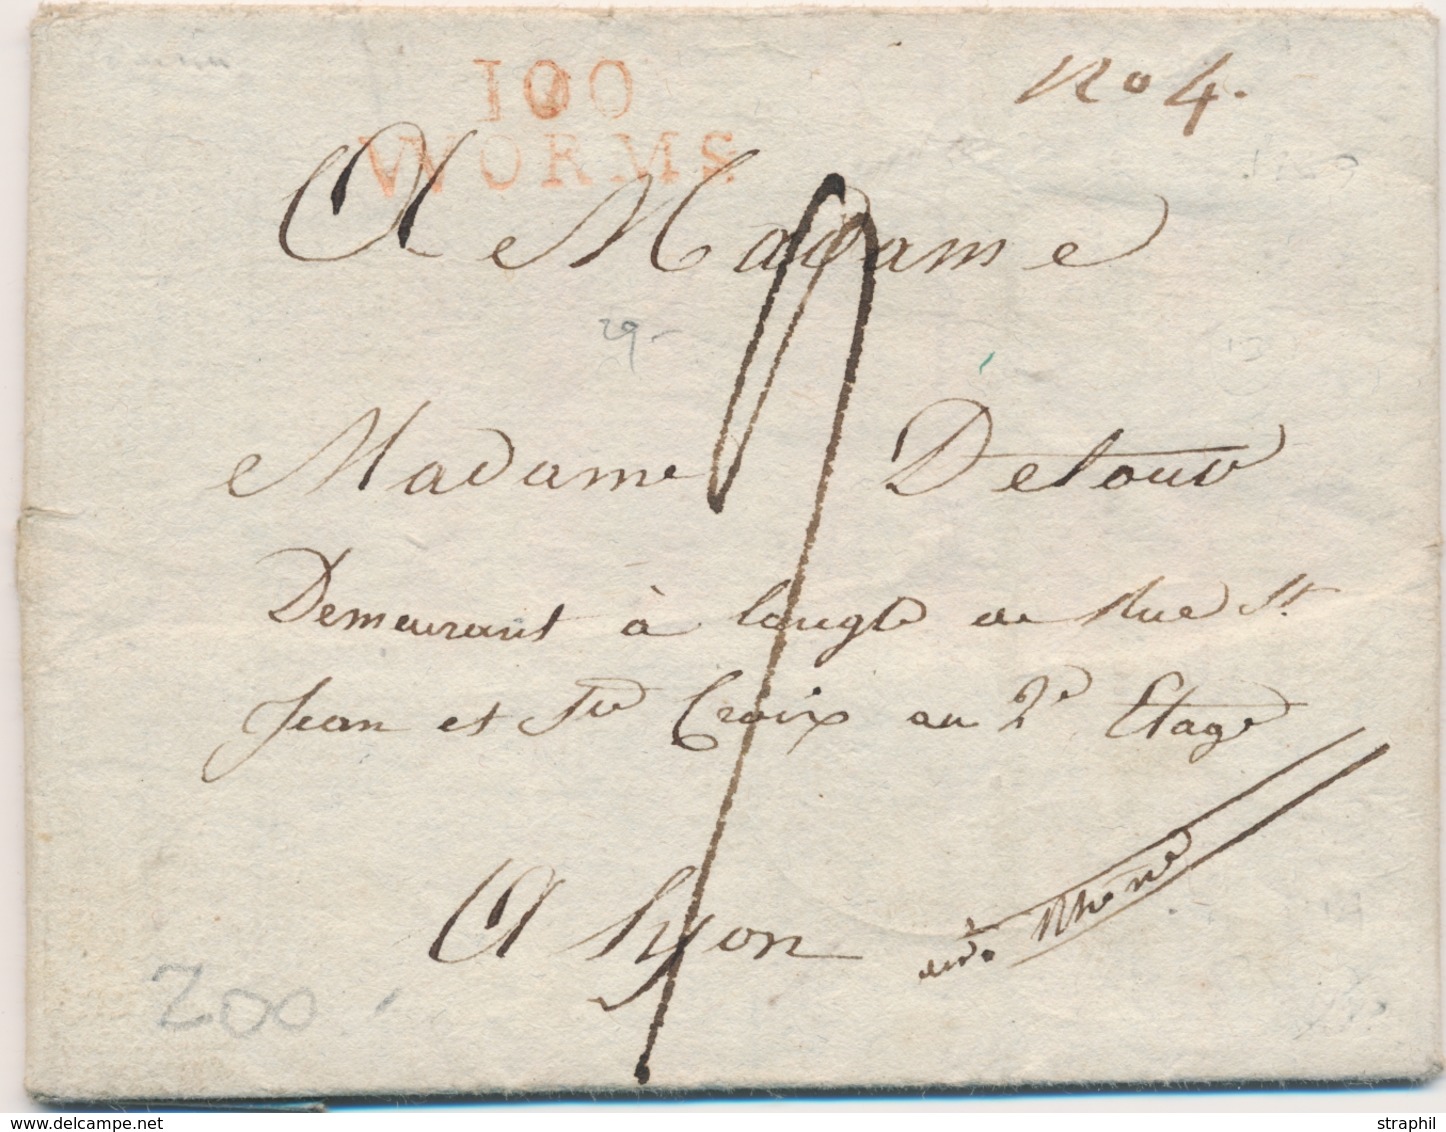 100
WORMS.
No 4.
A Madame
29-
Madame Detour
Demeurant à l'angle de Rue St
Jean et Ste Croix au 2e Etage
A Lyon
du Rhone
200
www.delcampe.net
straphil